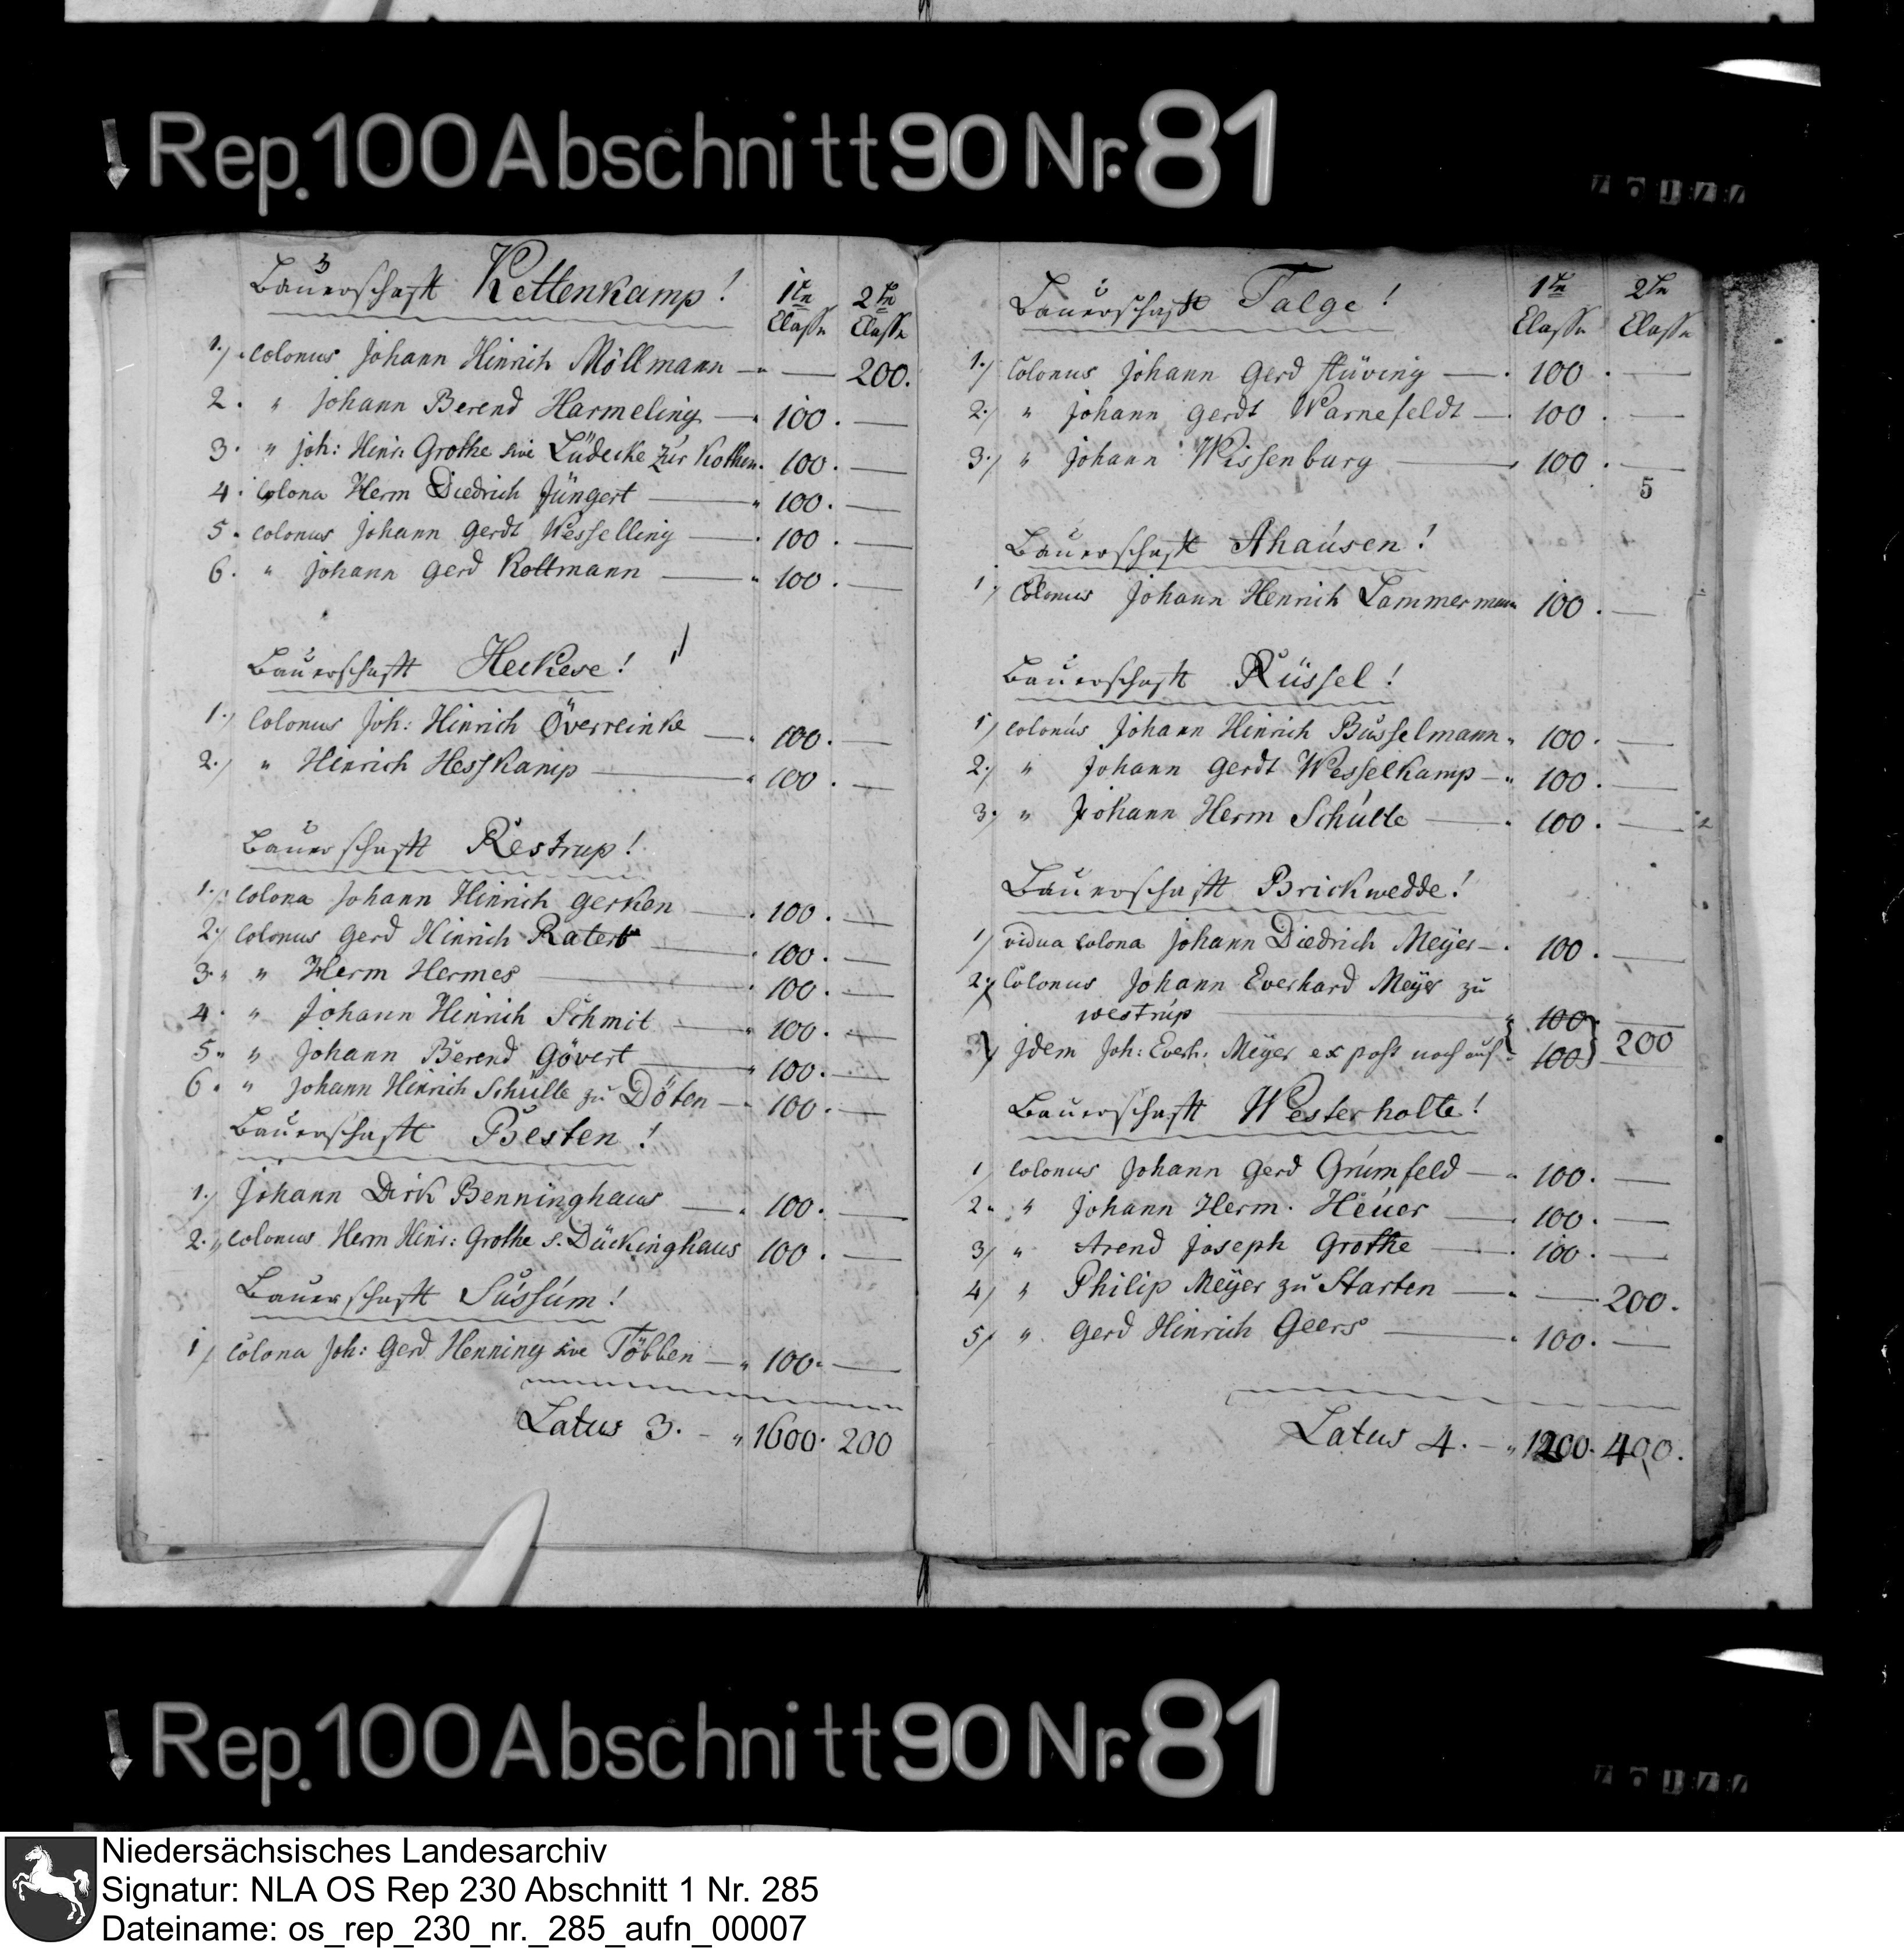 Rep. 100 Abschnitt 90 Nr. 81
Bauerschaft Kettenkamp!
1te 2te
Classe Classe
1.) Colonus Johann Hinrich Möllmann — — 200.
2. " Johann Berend Harmeling — 100. —
3. " Joh: Hinr: Grothe sive Lüdecke zur Kothen. 100. —
4. Colona Herm Diedrich Jüngert — 100. —
5. Colonus Johann Gerdt Wesselling — 100. —
6. " Johann Gerd Kottmann — 100. —
Bauerschaft Heckese!
1.) Colonus Joh: Hinrich Överreinke — 100. —
2.) " Hinrich Hesskamp — 100. —
Bauerschaft Restrup!
1. Colona Johann Hinrich Gerken — 100. —
2.) Colonus Gerd Hinrich Ratert — 100. —
3. " Herm Hermes — 100. —
4. " Johann Hinrich Schmit — 100. —
5. " Johann Berend Gövert — 100. —
6. " Johann Hinrich Schulte zu Döten — 100. —
Bauerschaft Besten!
1.) Johann Dirk Benninghaus — 100. —
2. Colonus Herm Hinr: Grothe s. Dückinghaus 100. —
Bauerschaft Sussum!
1) Colona Joh: Gerd Henning sive Többen — 100. —
Latus 3. — 1600. 200
Bauerschaft Talge!
1te 2te
Classe Classe
1.) Colonus Johann Gerd Stüving — 100. —
2.) " Johann Gerdt Warnefeldt — 100. —
3.) " Johann Wissenburg — 100. —
5
Bauerschaft Ahausen!
1) Colonus Johann Henrich Lammerman 100. —
Bauerschaft Rüssel!
1) Colonus Johann Hinrich Busselmann 100. —
2.) " Johann Gerdt Wesselkamp — 100. —
3. " Johann Herm Schulte — 100. —
Bauerschaft Brickwedde!
1) vidua Colona Johann Diedrich Meyer — 100. —
2.) Colonus Johann Everhard Meÿer zu
westrup 100 —
Idem Joh: Everh: Meÿer ex post noch auf 100 200
Bauerschaft Westerholte!
1) Colonus Johann Gerd Grumfeld — 100. —
2. " Johann Herm. Heuer — 100. —
3) " Arend Joseph Grothe — 100. —
4) " Philip Meÿer zu Starten — — 200.
5) " Gerd Hinrich Geers — 100. —
Latus 4. — 1200. 400.
Rep. 100 Abschnitt 90 Nr. 81
Niedersächsisches Landesarchiv
Signatur: NLA OS Rep 230 Abschnitt 1 Nr. 285
Dateiname: os_rep_230_nr._285_aufn_00007